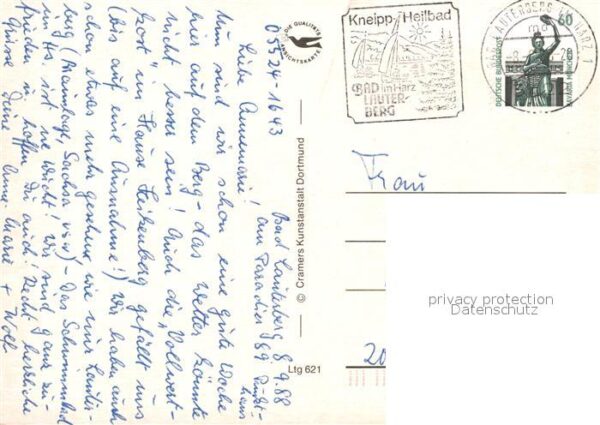 DIE QUALITÄTS
ANSICHTSKARTE
05524-1643
Bad Lauterberg, 8.9.88
Am Paradies 69
Liebe Annemarie!
Nun sind wir schon eine gute Woche
hier auf dem Berg - das Wetter könnte
nicht besser sein! Auch die "Vollwert-
kost" im Hause Heikenberg gefällt uns
(bis auf eine Ausnahme!) Wir haben auch
schon etwas mehr gesehen wie nur Lauter-
berg (Braunlage, Sachsa, usw) - Das Schwimmbad
im Hs. ist sehr Wir sind ganz zu-
frieden u. hoffen Du auch! Recht herzliche
Grüsse Deine Anne-Marie + Wolf
© Cramers Kunstanstalt Dortmund
Ltg 621
Kneipp-Heilbad
BAD im Harz
LAUTER-
BERG
BAD LAUTERBERG IM HARZ 1
60
DEUTSCHE BUNDESPOST
BAVARIA MÜNCHEN
Frau
20
privacy protection
Datenschutz